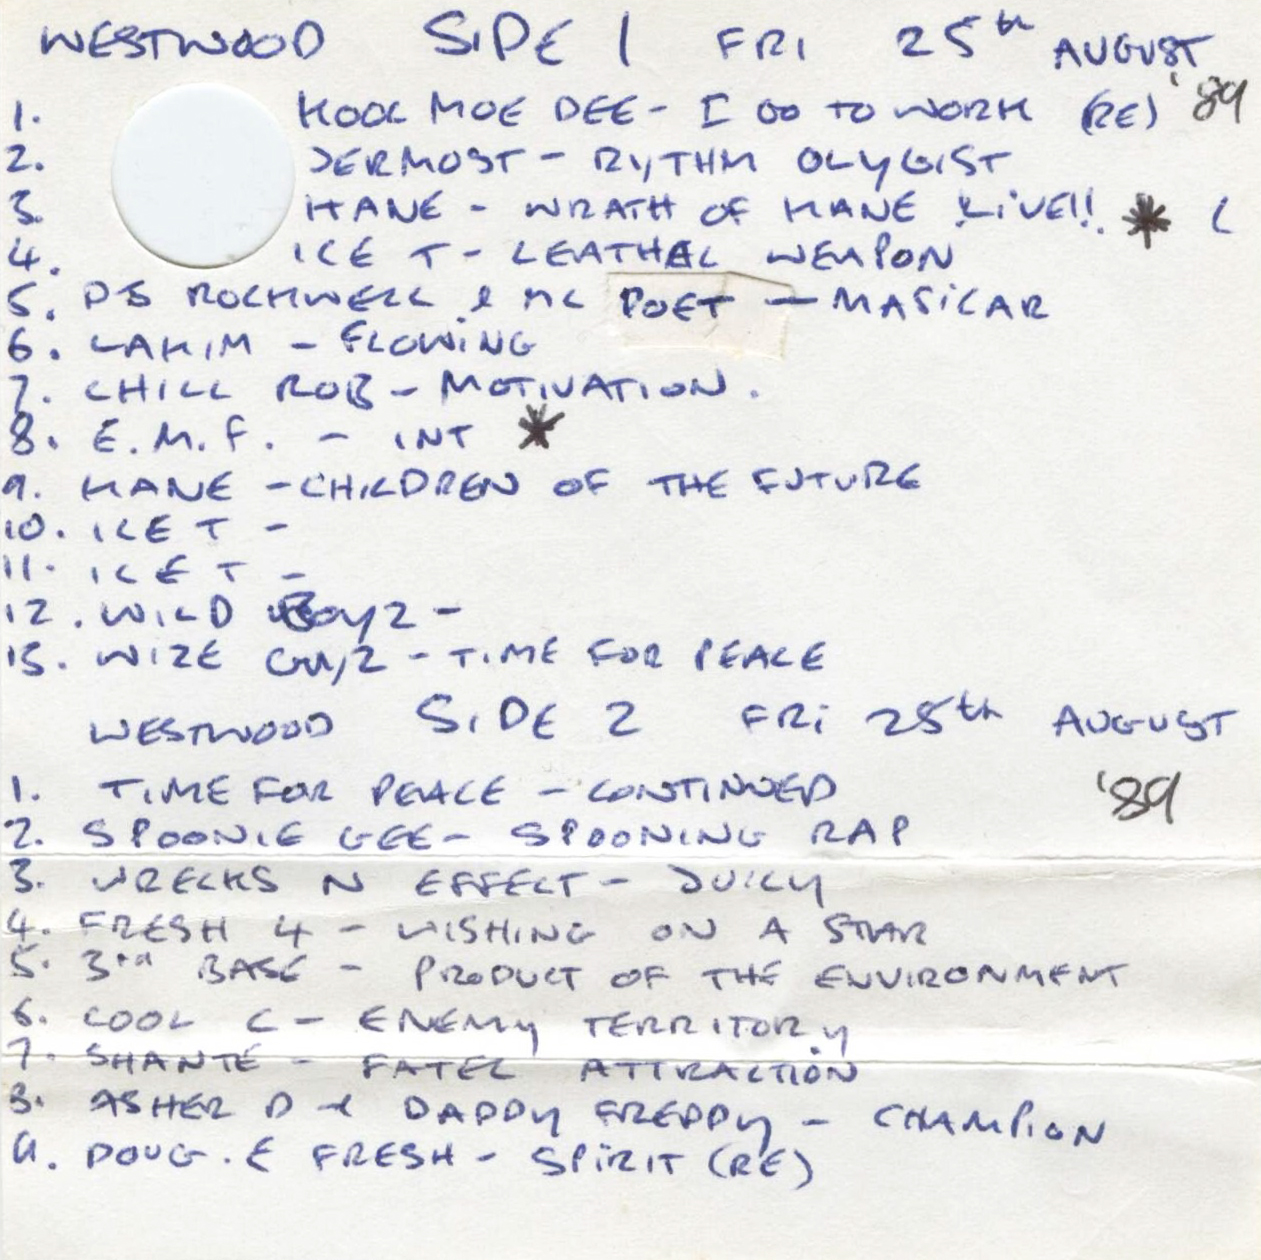 WESTWOOD SIDE 1 FRI 25th AUGUST '89
1. KOOL MOE DEE - I GO TO WORK (RE)
2. JERMOST - RYTHM OLYGIST
3. KANE - WRATH OF KANE LIVE!! * (
4. ICE T - LEATHAL WEAPON
5. DJ ROCKWELL & MC POET - MASICAR
6. LAKIM - FLOWING
7. CHILL ROB - MOTIVATION.
8. E.M.F. - INT *
9. KANE - CHILDREN OF THE FUTURE
10. ICE T -
11. ICE T -
12. WILD BOYZ -
13. WIZE GUYZ - TIME FOR PEACE
WESTWOOD SIDE 2 FRI 25th AUGUST '89
1. TIME FOR PEACE - CONTINUED
2. SPOONIE GEE - SPOONING RAP
3. WRECKS N EFFECT - JUICY
4. FRESH 4 - WISHING ON A STAR
5. 3rd BASE - PRODUCT OF THE ENVIRONMENT
6. COOL C - ENEMY TERRITORY
7. SHANTÉ - FATEL ATTRACTION
8. ASHER D & DADDY FREDDY - CHAMPION
9. DOUG.E FRESH - SPIRIT (RE)